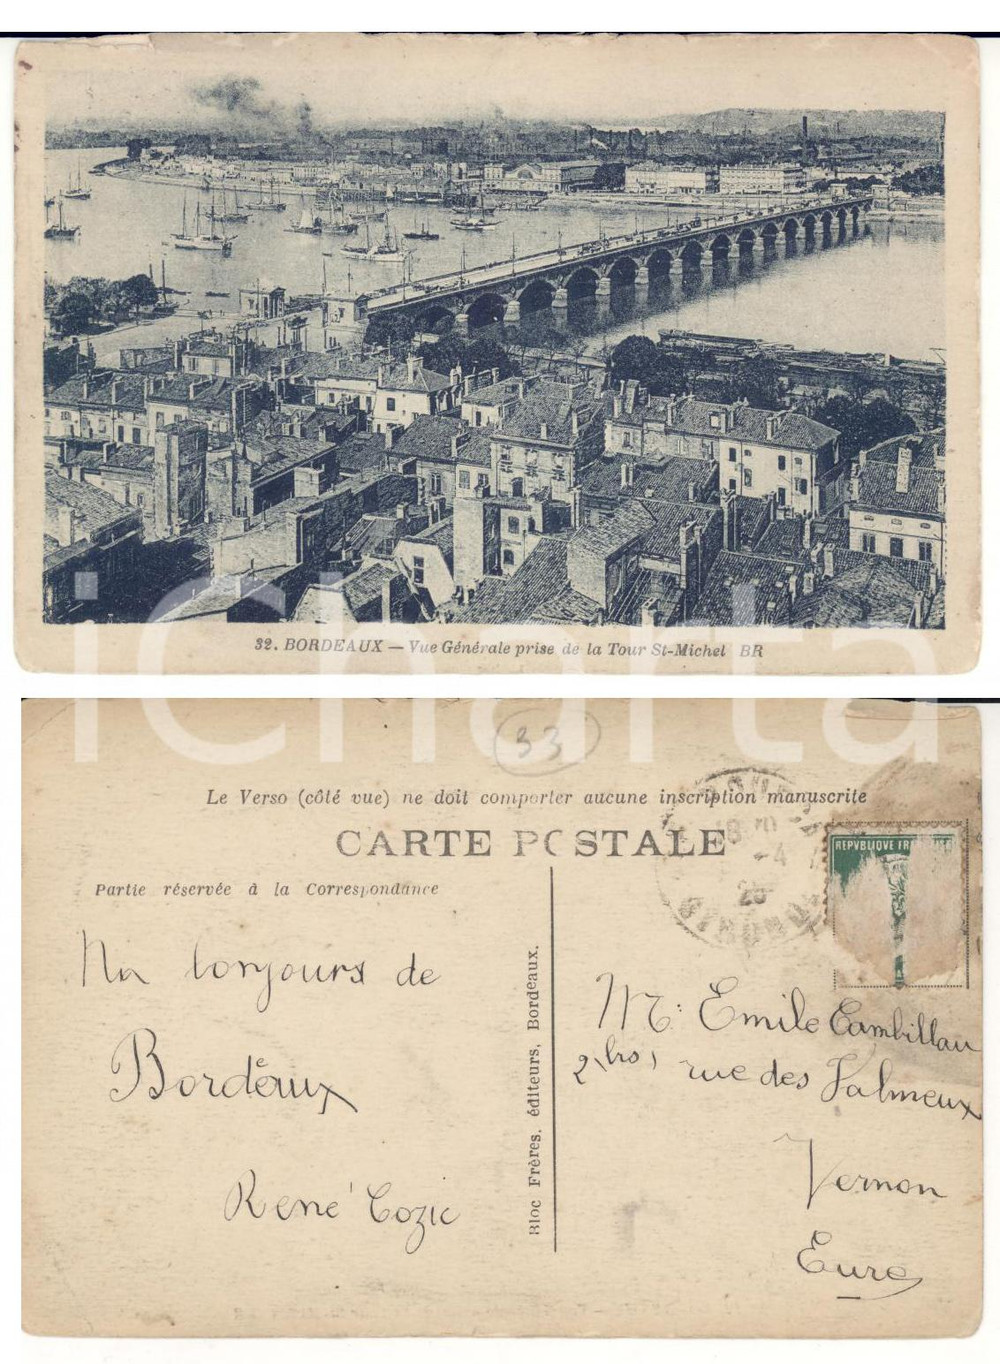 32. BORDEAUX — Vue Générale prise de la Tour St-Michel BR
iCharta
33
Le Verso (côté vue) ne doit comporter aucune inscription manuscrite
CARTE POSTALE
Partie réservée à la Correspondance
REPUBLIQUE FRANÇAISE
-4
25
GIRONDE
Un bonjours de
Bordeaux
René Cozic
Bloc Frères, éditeurs, Bordeaux.
Mr: Emile Cambillau
2 bis, rue des Valmeux
Vernon
Eure